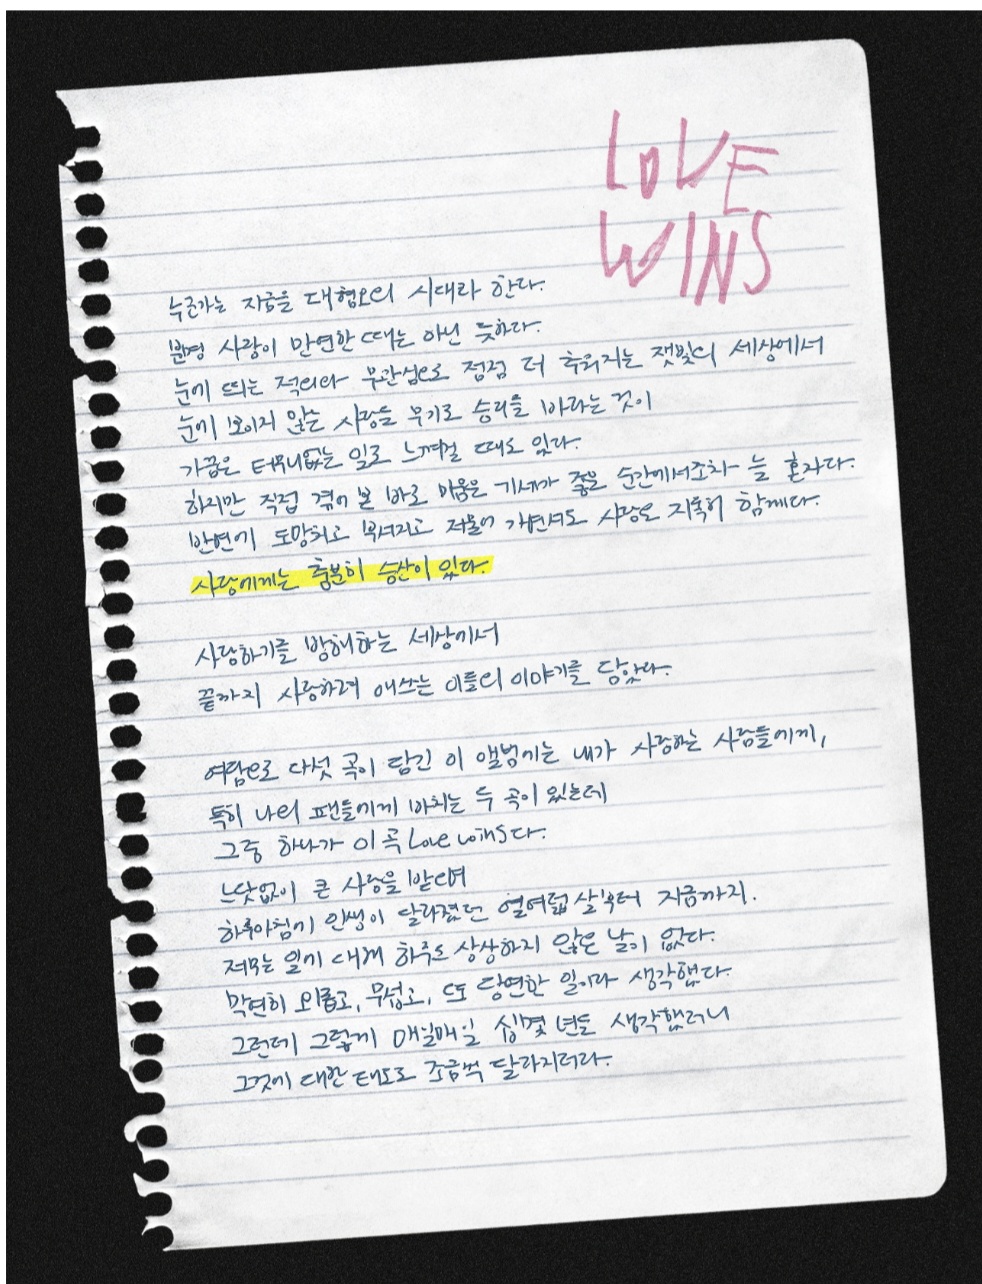 LOVE
WINS
누군가는 지금을 대혐오의 시대라 한다.
분명 사랑이 만연한 때는 아닌 듯하다.
눈에 띄는 적의와 무관심으로 점점 더 추워지는 잿빛의 세상에서
눈에 보이지 않는 사랑을 무기로 승리를 바라는 것이
가끔은 터무니없는 일로 느껴질 때도 있다.
하지만 직접 겪어 본 바로 미움은 기세가 좋을 순간에서조차 늘 혼자다.
반면에 도망치고 부서지고 저물어 가면서도 사랑은 지독히 함께다.
사랑에게는 충분히 승산이 있다.
사랑하기를 방해하는 세상에서
끝까지 사랑하려 애쓰는 이들의 이야기를 담았다.
여담으로 다섯 곡이 담긴 이 앨범에는 내가 사랑하는 사람들에게,
특히 나의 팬들에게 바치는 두 곡이 있는데
그중 하나가 이 곡 Love wins다.
느닷없이 큰 사랑을 받으며
하루아침에 인생이 달라졌던 열여덟 살부터 지금까지.
저무는 일에 대해 하루도 상상하지 않은 날이 없다.
막연히 외롭고, 무섭고, 또 당연한 일이라 생각했다.
그런데 그렇게 매일매일 십몇 년을 생각했더니
그것에 대한 태도도 조금씩 달라지더라.